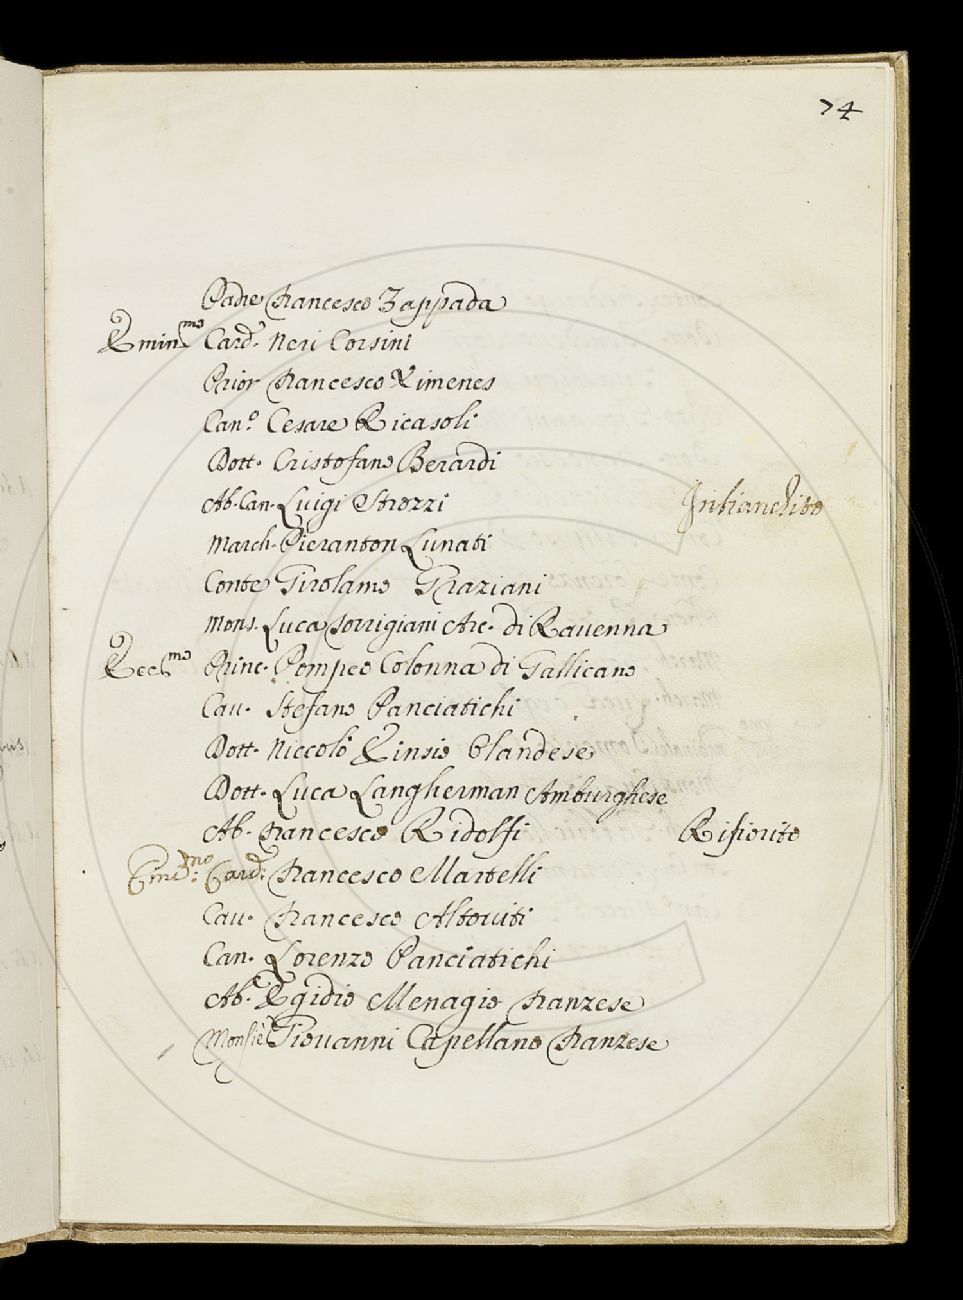 74
Padre Francesco Zappada
Emin.mo Card. Neri Corsini
Prior Francesco Ximenes
Can.o Cesare Ricasoli
Dott. Cristofano Berardi
Ab. Can. Luigi Strozzi Inbianchito
March. Pieranton Lunati
Conte Girolamo Graziani
Mons. Luca Torrigiani Arc. di Ravenna
Ecc.mo Princ. Pompeo Colonna di Gallicano
Cav. Stefano Panciatichi
Dott. Niccolò Einsio Olandese
Dott. Luca Langherman Amburghese
Ab. Francesco Ridolfi Rifiorito
Emin.mo Card. Francesco Martelli
Cav. Francesco Altoviti
Can. Lorenzo Panciatichi
Ab. Egidio Menagio Franzese
Giovanni Capellano Franzese